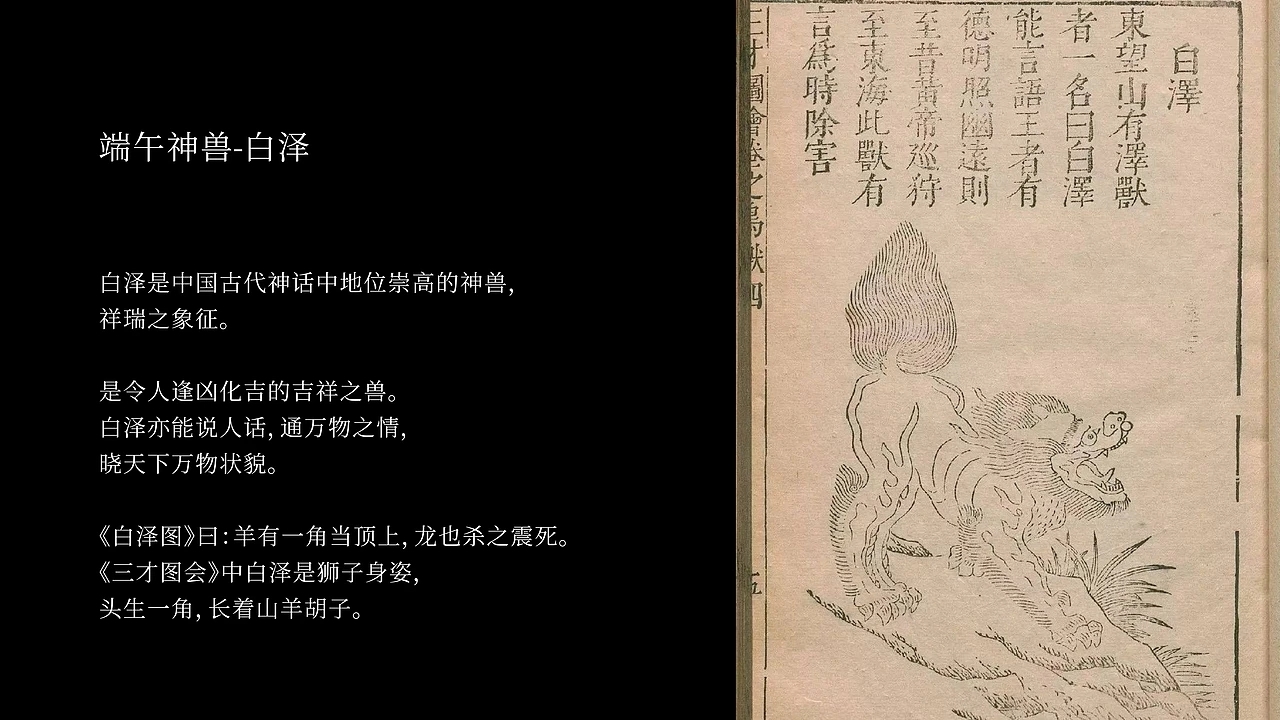 端午神兽-白泽
白泽是中国古代神话中地位崇高的神兽,
祥瑞之象征。
是令人逢凶化吉的吉祥之兽。
白泽亦能说人话, 通万物之情,
晓天下万物状貌。
《白泽图》曰: 羊有一角当顶上, 龙也杀之震死。
《三才图会》中白泽是狮子身姿,
头生一角, 长着山羊胡子。
白澤
東望山有澤獸
者一名曰白澤
能言語王者有
德明照幽遠則
至昔黃帝巡狩
至東海此獸有
言爲時除害
三才圖會卷之鳥獸四
五